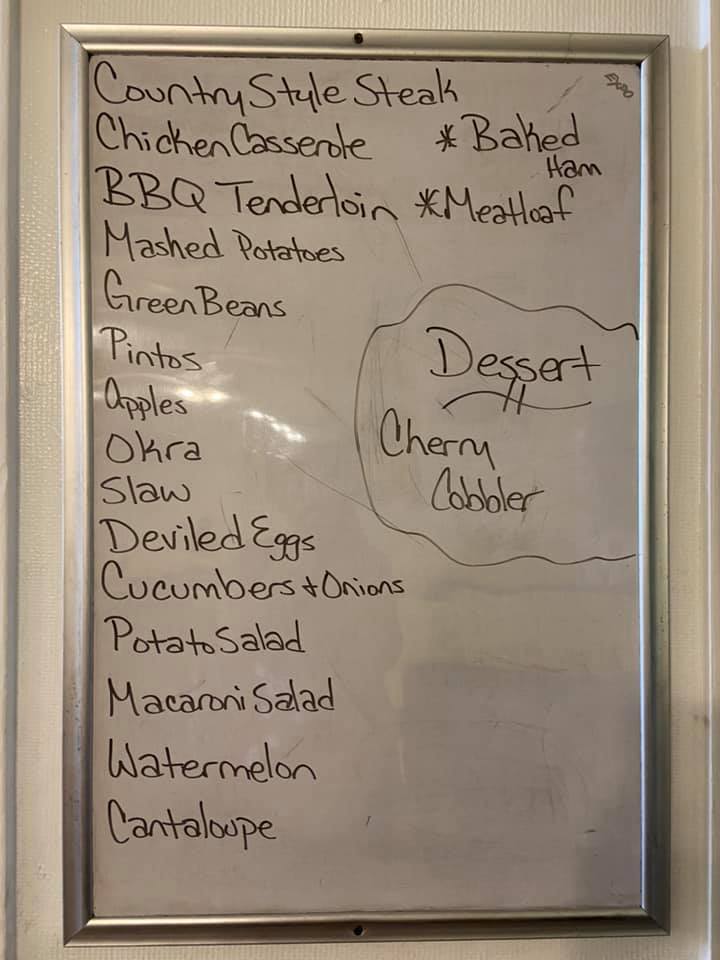 Country Style Steak
Chicken Casserole * Baked
Ham
BBQ Tenderloin *Meatloaf
Mashed Potatoes
Green Beans
Pintos
Apples
Okra
Slaw
Deviled Eggs
Cucumbers + Onions
Potato Salad
Macaroni Salad
Watermelon
Cantaloupe
Dessert
Cherry
Cobbler